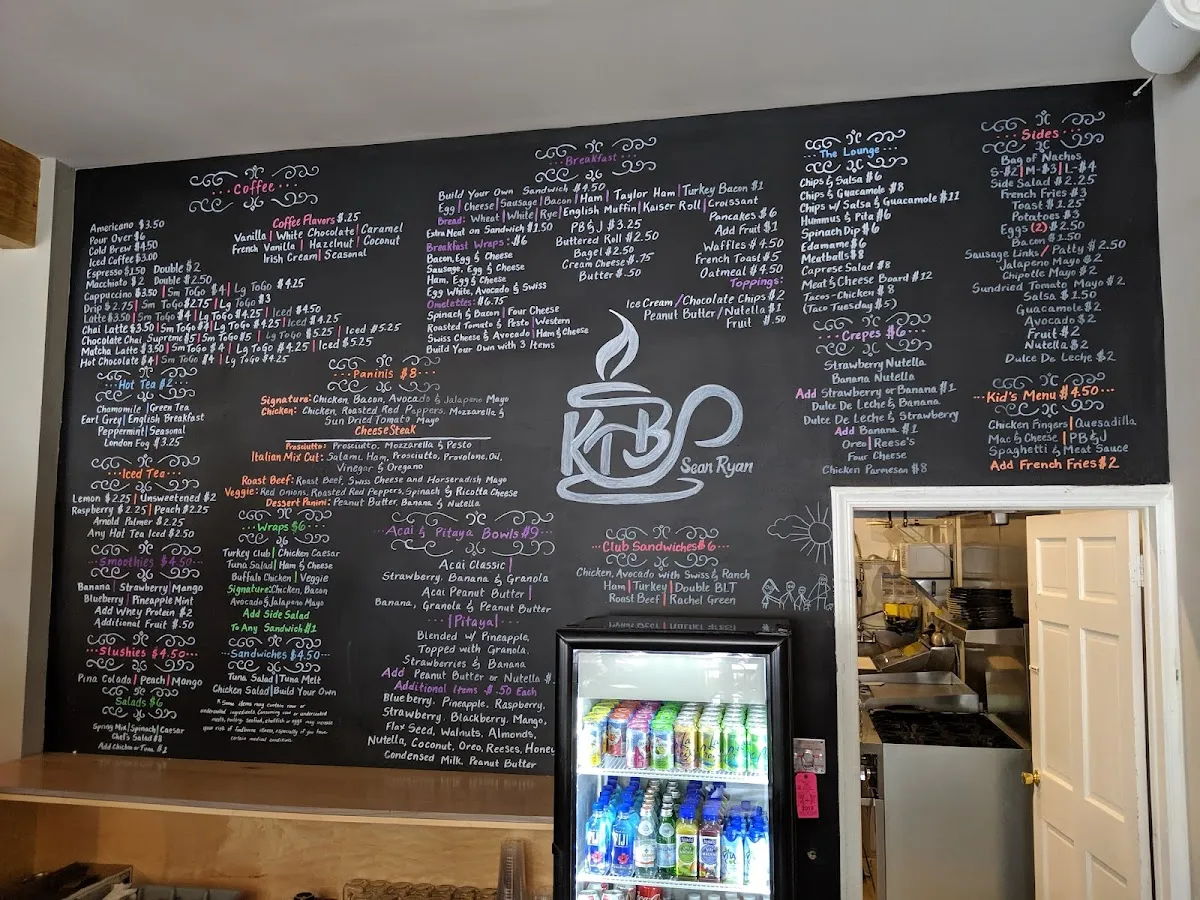 Coffee
Americano $3.50
Pour Over $4
Cold Brew $4.50
Iced Coffee $3.00
Espresso $1.50 Double $2
Macchiato $2 Double $2.50
Cappuccino $3.50 | Sm ToGo $4 | Lg ToGo $4.25
Drip $2.75 | Sm ToGo $2.75 | Lg ToGo $3
Latte $3.50 | Sm ToGo $4 | Lg ToGo $4.25 | Iced $4.50
Chai Latte $3.50 | Sm ToGo $4 | Lg ToGo $4.25 | Iced $4.25
Chocolate Chai Supreme $5 | Sm ToGo $5 | Lg ToGo $5.25 | Iced $5.25
Matcha Latte $3.50 | Sm ToGo $4 | Lg ToGo $4.25 | Iced $5.25
Hot Chocolate $4 | Sm ToGo $4 | Lg ToGo $4.25
Coffee Flavors $.25
Vanilla | White Chocolate | Caramel
French Vanilla | Hazelnut | Coconut
Irish Cream | Seasonal
Hot Tea $2
Chamomile | Green Tea
Earl Grey | English Breakfast
Peppermint | Seasonal
London Fog $3.25
Iced Tea
Lemon $2.25 | Unsweetened $2
Raspberry $2.25 | Peach $2.25
Arnold Palmer $2.25
Any Hot Tea Iced $2.50
Smoothies $4.50
Banana | Strawberry | Mango
Blueberry | Pineapple Mint
Add Whey Protein $2
Additional Fruit $.50
Slushies $4.50
Pina Colada | Peach | Mango
Salads $6
Spring Mix | Spinach | Caesar
Chef's Salad $8
Add Chicken or Tuna $1
Paninis $8
Signature: Chicken, Bacon, Avocado & Jalapeno Mayo
Chicken: Chicken, Roasted Red Peppers, Mozzarella &
Sun Dried Tomato Mayo
Cheese Steak
Prosciutto: Prosciutto, Mozzarella & Pesto
Italian Mix Cut: Salami, Ham, Prosciutto, Provolone, Oil,
Vinegar & Oregano
Roast Beef: Roast Beef, Swiss Cheese and Horseradish Mayo
Veggie: Red Onions, Roasted Red Peppers, Spinach & Ricotta Cheese
Dessert Panini: Peanut Butter, Banana & Nutella
Wraps $6
Turkey Club | Chicken Caesar
Tuna Salad | Ham & Cheese
Buffalo Chicken | Veggie
Signature: Chicken, Bacon
Avocado & Jalapeno Mayo
Add Side Salad
To Any Sandwich $1
Sandwiches $4.50
Tuna Salad | Tuna Melt
Chicken Salad | Build Your Own
* Some items may contain raw or
undercooked ingredients. Consuming raw or undercooked
meats, poultry, seafood, shellfish or eggs may increase
your risk of foodborne illness, especially if you have
certain medical conditions.
Acai & Pitaya Bowls $9
Acai Classic |
Strawberry, Banana & Granola
Acai Peanut Butter |
Banana, Granola & Peanut Butter
| Pitaya |
Blended w/ Pineapple,
Topped with Granola,
Strawberries & Banana
Add Peanut Butter or Nutella $
Additional Items $.50 Each
Blueberry, Pineapple, Raspberry,
Strawberry, Blackberry, Mango,
Flax Seed, Walnuts, Almonds,
Nutella, Coconut, Oreo, Reeses, Honey
Condensed Milk, Peanut Butter
Breakfast
Build Your Own Sandwich $4.50
Egg | Cheese | Sausage | Bacon | Ham | Taylor Ham | Turkey Bacon $1
Bread: Wheat | White | Rye | English Muffin | Kaiser Roll | Croissant
Extra Meat on Sandwich $1.50
Breakfast Wraps: $6
Bacon, Egg & Cheese
Sausage, Egg & Cheese
Ham, Egg & Cheese
Egg White, Avocado & Swiss
Omelettes: $6.75
Spinach & Bacon | Four Cheese
Roasted Tomato & Pesto | Western
Swiss Cheese & Avocado | Ham & Cheese
Build Your Own with 3 Items
PB&J $3.25
Buttered Roll $2.50
Bagel $2.50
Cream Cheese $.75
Butter $.50
Pancakes $6
Add Fruit $1
Waffles $4.50
French Toast $5
Oatmeal $4.50
Toppings:
Ice Cream / Chocolate Chips $2
Peanut Butter / Nutella $1
Fruit $.50
KTB
Sean Ryan
Club Sandwiches $6
Chicken, Avocado with Swiss & Ranch
Ham | Turkey | Double BLT
Roast Beef | Rachel Green
The Lounge
Chips & Salsa $6
Chips & Guacamole $8
Chips w/ Salsa & Guacamole $11
Hummus & Pita $6
Spinach Dip $6
Edamame $6
Meatballs $8
Caprese Salad $8
Meat & Cheese Board $12
Tacos - Chicken $8
(Taco Tuesday $5)
Crepes $6
Strawberry Nutella
Banana Nutella
Add Strawberry or Banana $1
Dulce De Leche & Banana
Dulce De Leche & Strawberry
Add Banana $1
Oreo | Reese's
Four Cheese
Chicken Parmesan $8
Sides
Bag of Nachos
S-$2 | M-$3 | L-$4
Side Salad $2.25
French Fries $3
Toast $1.25
Potatoes $3
Eggs (2) $2.50
Bacon $1.50
Sausage Links / Patty $2.50
Jalapeno Mayo $2
Chipotle Mayo $2
Sundried Tomato Mayo $2
Salsa $1.50
Guacamole $2
Avocado $2
Fruit $2
Nutella $2
Dulce De Leche $2
Kid's Menu $4.50
Chicken Fingers | Quesadilla
Mac & Cheese | PB&J
Spaghetti & Meat Sauce
Add French Fries $2
FIJI